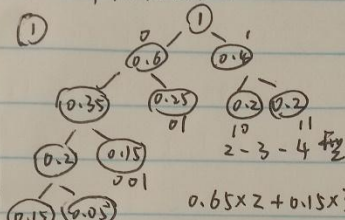 ① 1
0 1
0.6 0.4
0.35 0.25 0.2 0.2
01 10 11
0.2 0.15 2-3-4
001
0.15 0.05 0.65×2+0.15×3